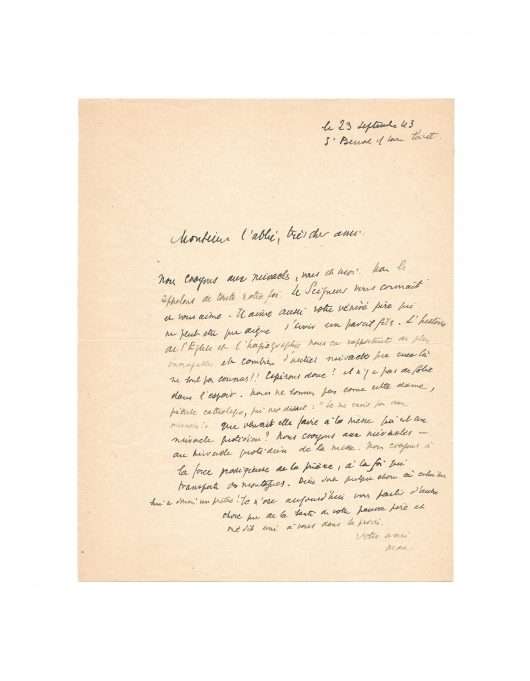 le 23 septembre 43
St Benoit s/ Loire Loiret.
Monsieur l'abbé, très cher ami.
Nous croyons aux miracles, vous et moi. Nous les
appelons de toute notre foi. Le Seigneur vous connait
et vous aime. Il aime aussi votre vénéré père qui
ne peut etre que digne d'avoir un pareil fils. L'histoire
de l'Eglise et l'hagiographie nous en rapportent de plus
incroyables et combien d'autres miracles que ceux là
ne sont pas connus!! Espérons donc! il n'y a pas de folie
dans l'espoir. Nous ne sommes pas come cette dame,
catholique, qui nous disait: "Je ne crois pas aux
miracles". Que venait elle faire à la messe qui est un
miracle quotidien? Nous croyons aux miracles —
au miracle quotidien de la messe. Nous croyons à
la force prodigieuse de la prière, à la foi qui
transporte des montagnes. Dieu doit quelque chose à celui
Je n'ose aujourd'hui vous parler d'autre
chose que de la santé de votre pauvre père et
me dit uni à vous dans la prière.
Votre ami
Max